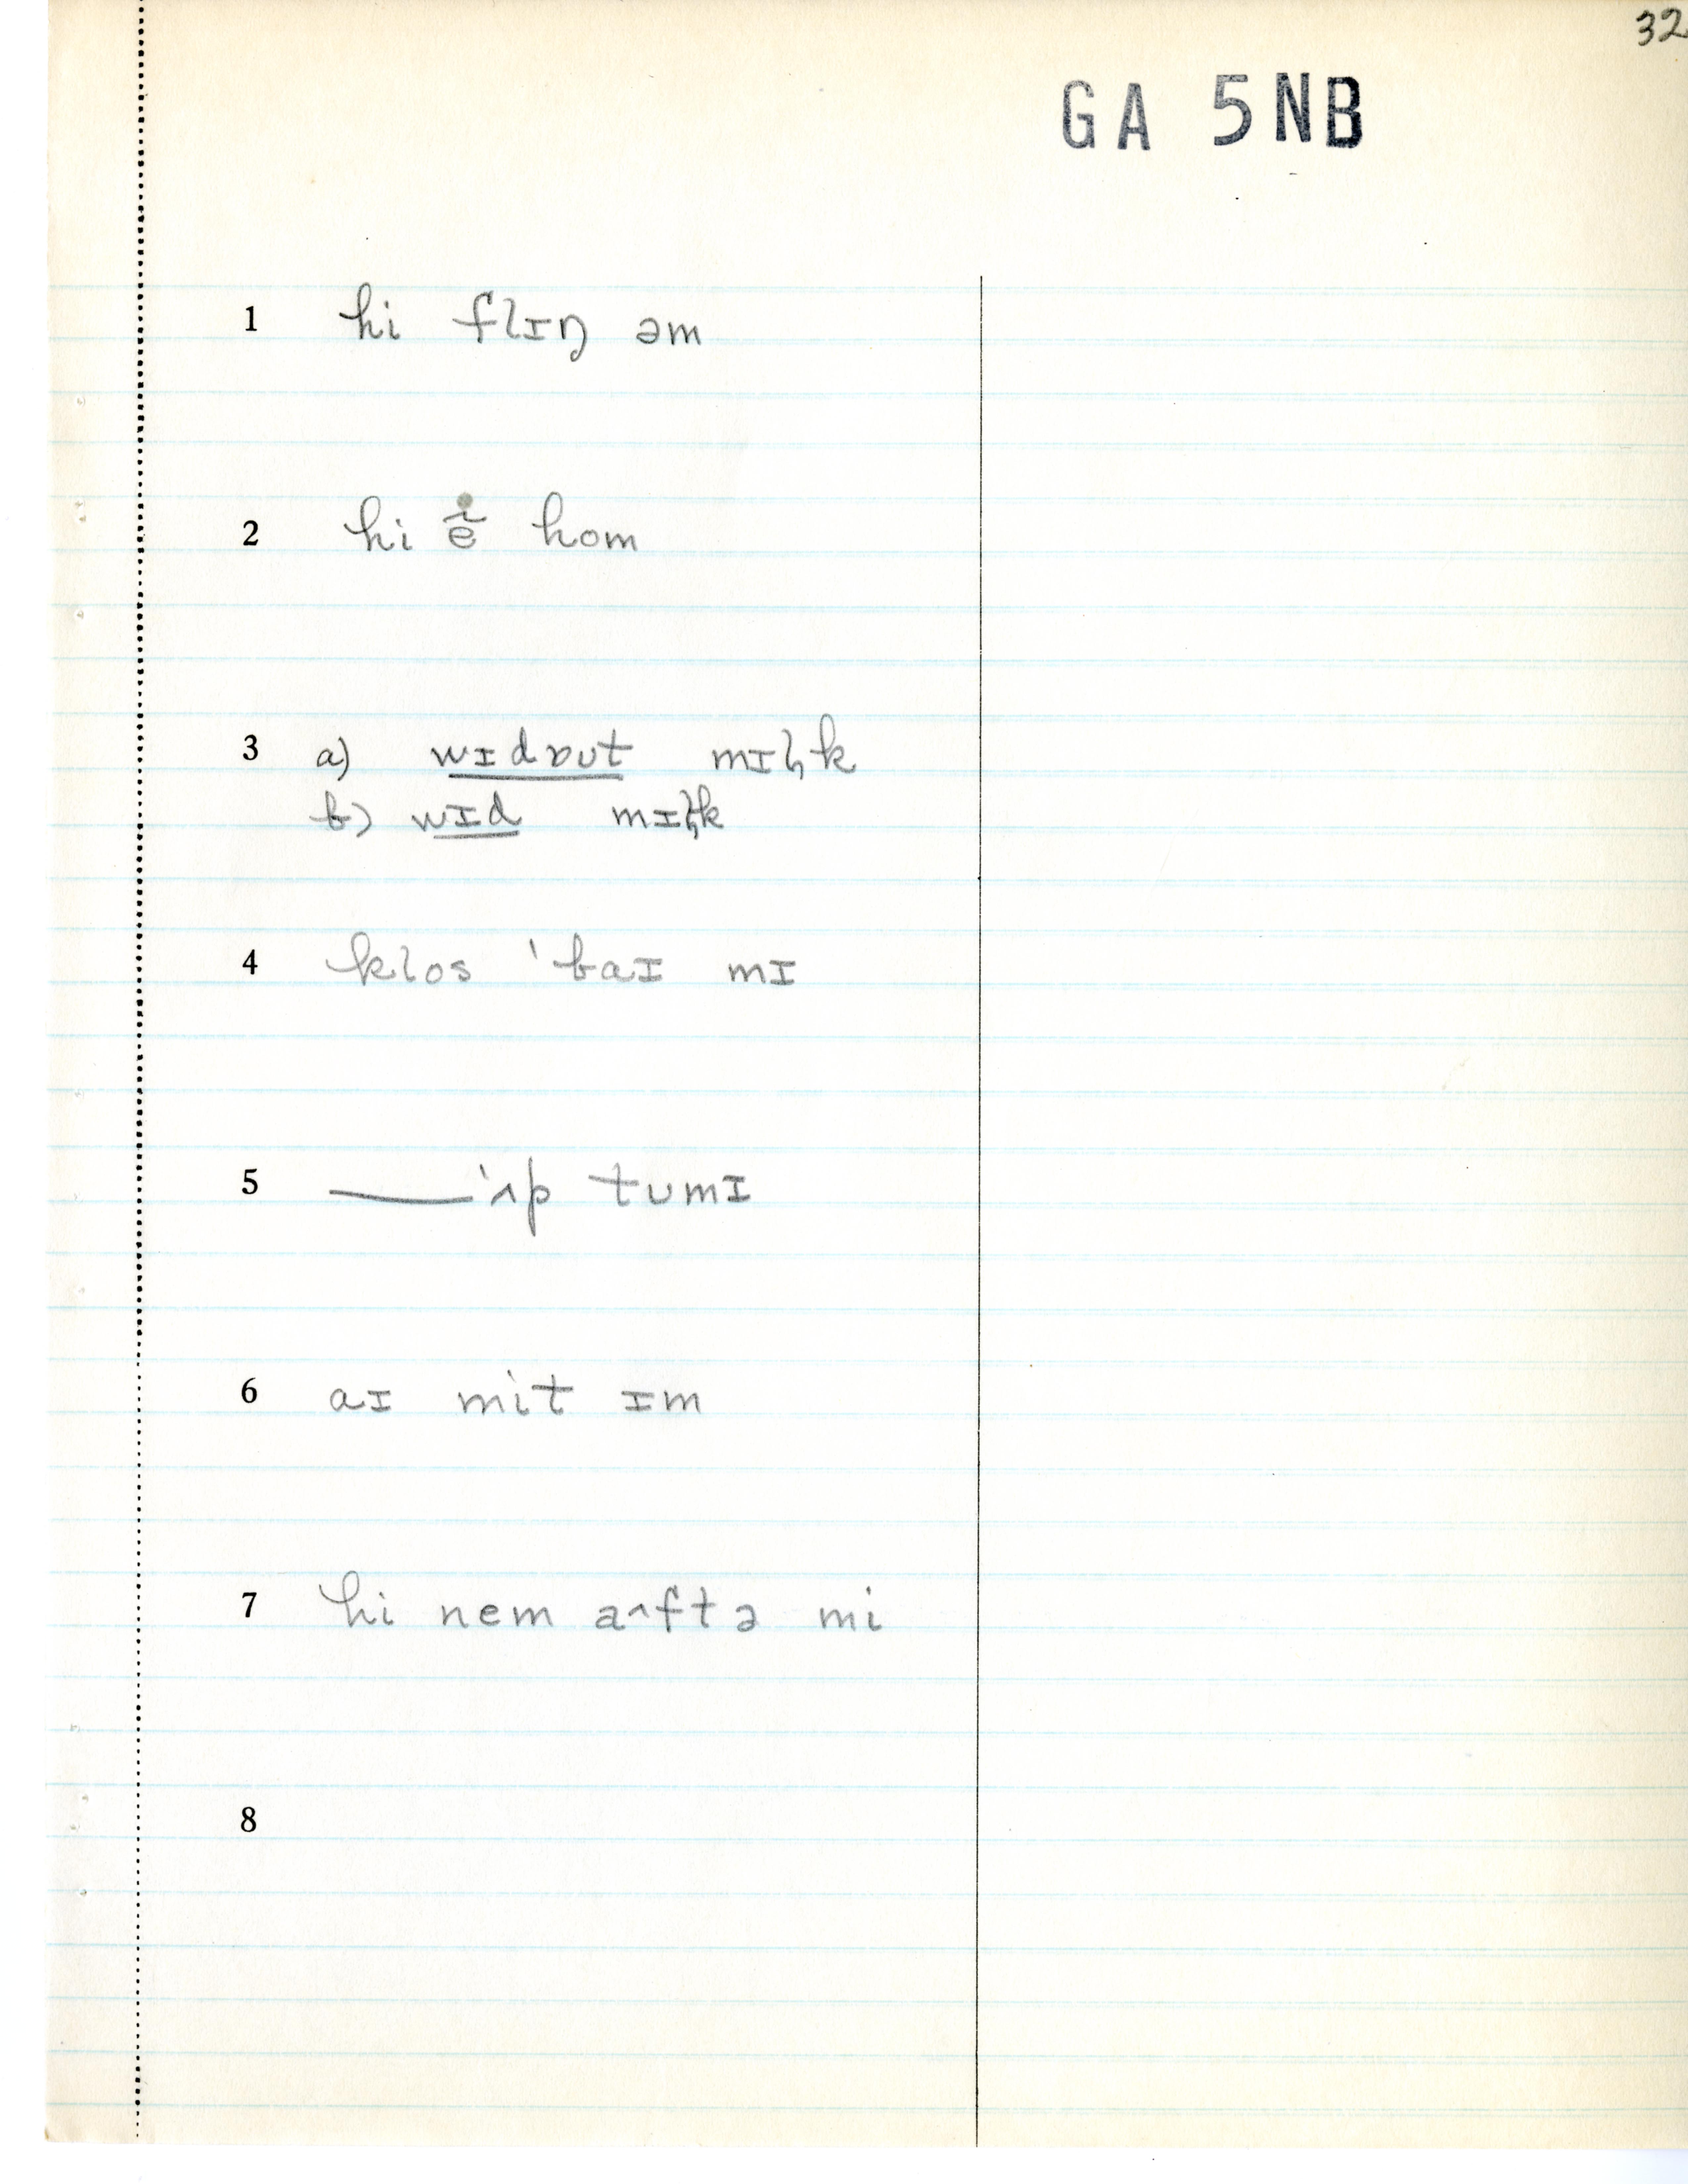 32
GA 5NB
1 hi flɪŋ əm
2 hi hom
3 a) wɪdɒʊt mɪl̩k
b) wɪd mɪl̩k
4 klos ˈbaɪ mɪ
5 —— ˈʌp tʊmɪ
6 aɪ mit ɪm
7 hi nem a˄ftə mi
8